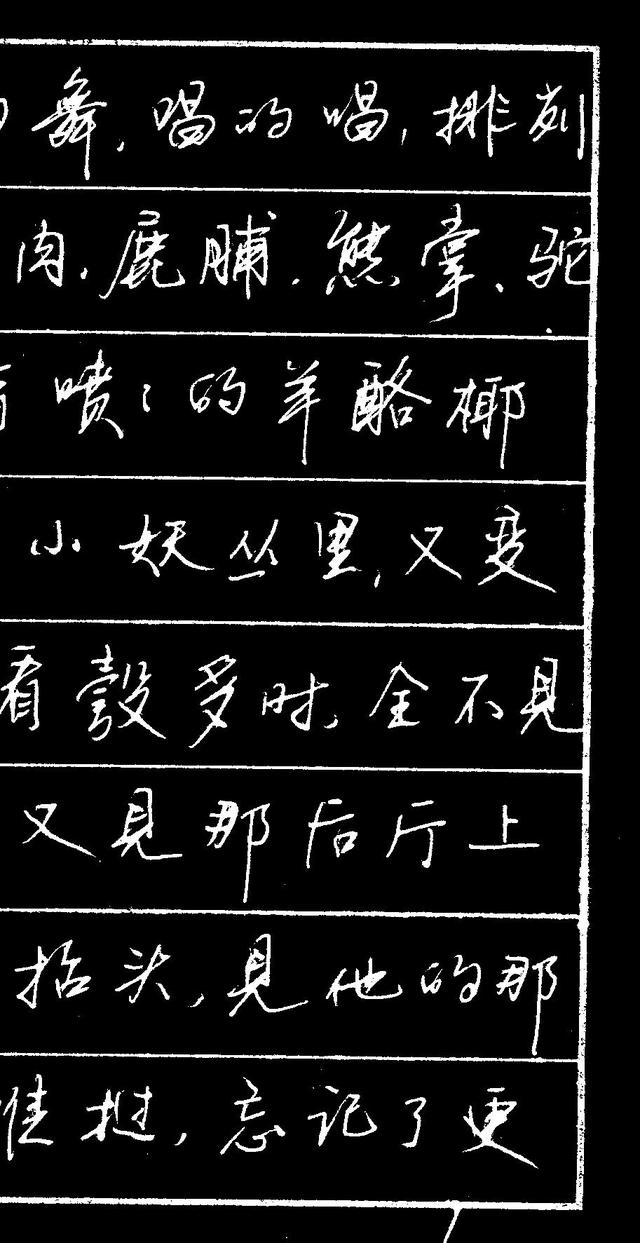 舞,唱的唱,排列
肉、鹿脯、熊掌、驼
喷喷的羊酪椰
小妖丛里,又变
看彀多时,全不见
又见那后厅上
抬头,见他的那
难挝,忘记了更